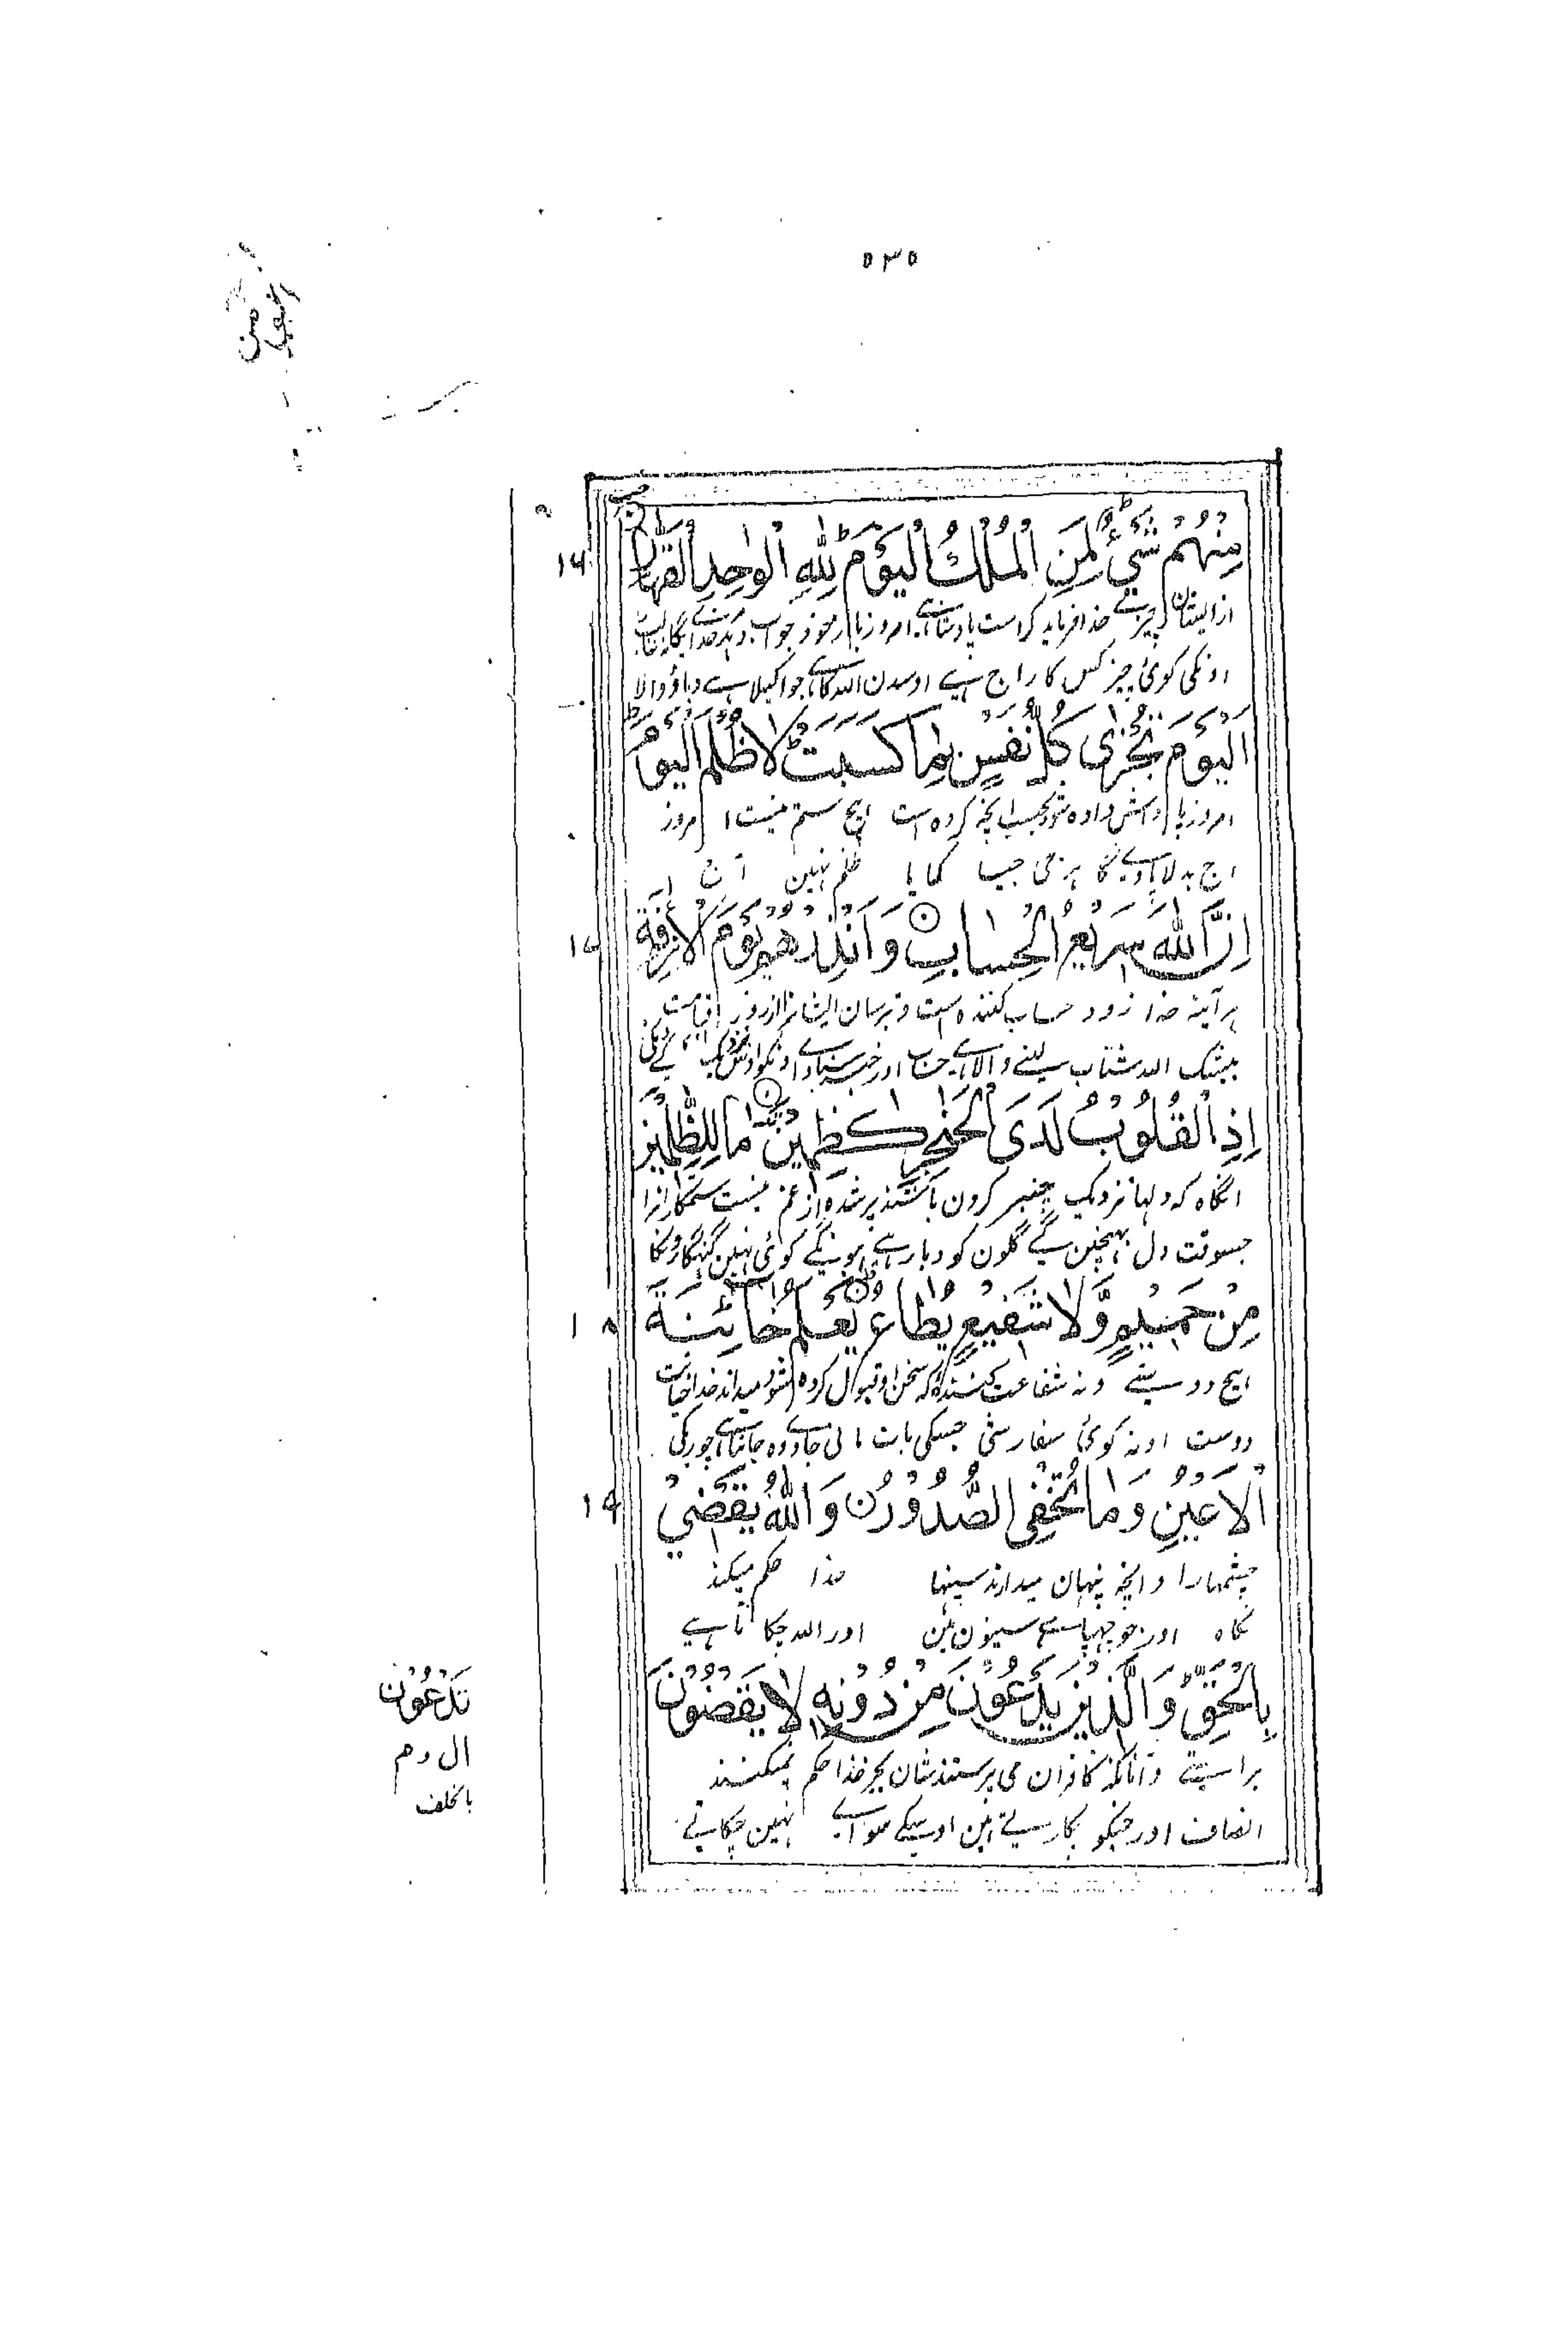 ۵۳۵
مِنْهُمْ شَیْءٌ لِمَنِ الْمُلْكُ الْیَوْمَ لِلّٰهِ الْوَاحِدِ الْقَهَّارِ
۱۶
ازایشان چیزے خدا فرماید کراست پادشاہی امروز باز خود جواب دہد خداے یگانہ غالب
اونکی کوئی چیز کس کا راج ہے اوسدن اللہ کا ہے جو اکیلا ہے دباؤ والا
اَلْیَوْمَ تُجْزٰی كُلُّ نَفْسٍۭ بِمَا كَسَبَتْ لَا ظُلْمَ الْیَوْمَ
امروز پاداش داده شود بحسب انچہ کرده است ہیچ ستم نیست امروز
آج بدلا پاویگا ہر جی جیسا کمایا ظلم نہین آج
اِنَّ اللّٰهَ سَرِیْعُ الْحِسَابِ وَاَنْذِرْهُمْ یَوْمَ الْاٰزِفَةِ
۱۷
ہرآینہ خدا زود حساب کننده است وبترسان ایشانرا ازروز قیامت
بیشک اللہ شتاب لینے والا ہے حساب اور خبر سنادے اونکو اوس نزدیک
اِذِ الْقُلُوْبُ لَدَی الْحَنَاجِرِ كٰظِمِیْنَ مَا لِلظّٰلِمِیْنَ
انگاه کہ دلہا نزدیک چنبر گردن باشند پر شده از غم نیست ستمگارانرا
جسوقت دل پہنچین گے گلون کو دبا رہے ہونگے کوئی نہین گنہگارونکا
مِنْ حَمِیْمٍ وَّلَا شَفِیْعٍ یُّطَاعُ یَعْلَمُ خَآئِنَةَ
۱۸
ہیچ دوستے ونہ شفاعت کنندہ کہ سخن او قبول کرده شود میداند خدا خیانت
دوست اورنہ کوئی سفارشی جسکی بات مانی جاوے وہ جانتا ہے چوری کی
الْاَعْیُنِ وَمَا تُخْفِی الصُّدُوْرُ وَاللّٰهُ یَقْضِیْ
۱۹
چشمہارا وانچہ پنہان میدارند سینہا خدا حکم میکند
نگاه اور جو چھپا ہے سینون مین اور اللہ چکاتا ہے
بِالْحَقِّ وَالَّذِیْنَ یَدْعُوْنَ مِنْ دُوْنِهٖ لَا یَقْضُوْنَ
براستی وانانکہ کافران می پرستندشان بجز خدا حکم نمیکنند
انصاف اور جنکو پکارتے ہین اوسکے سوا نہین چکاتے
تَدْعُوْنَ
ال وم
بالخلف